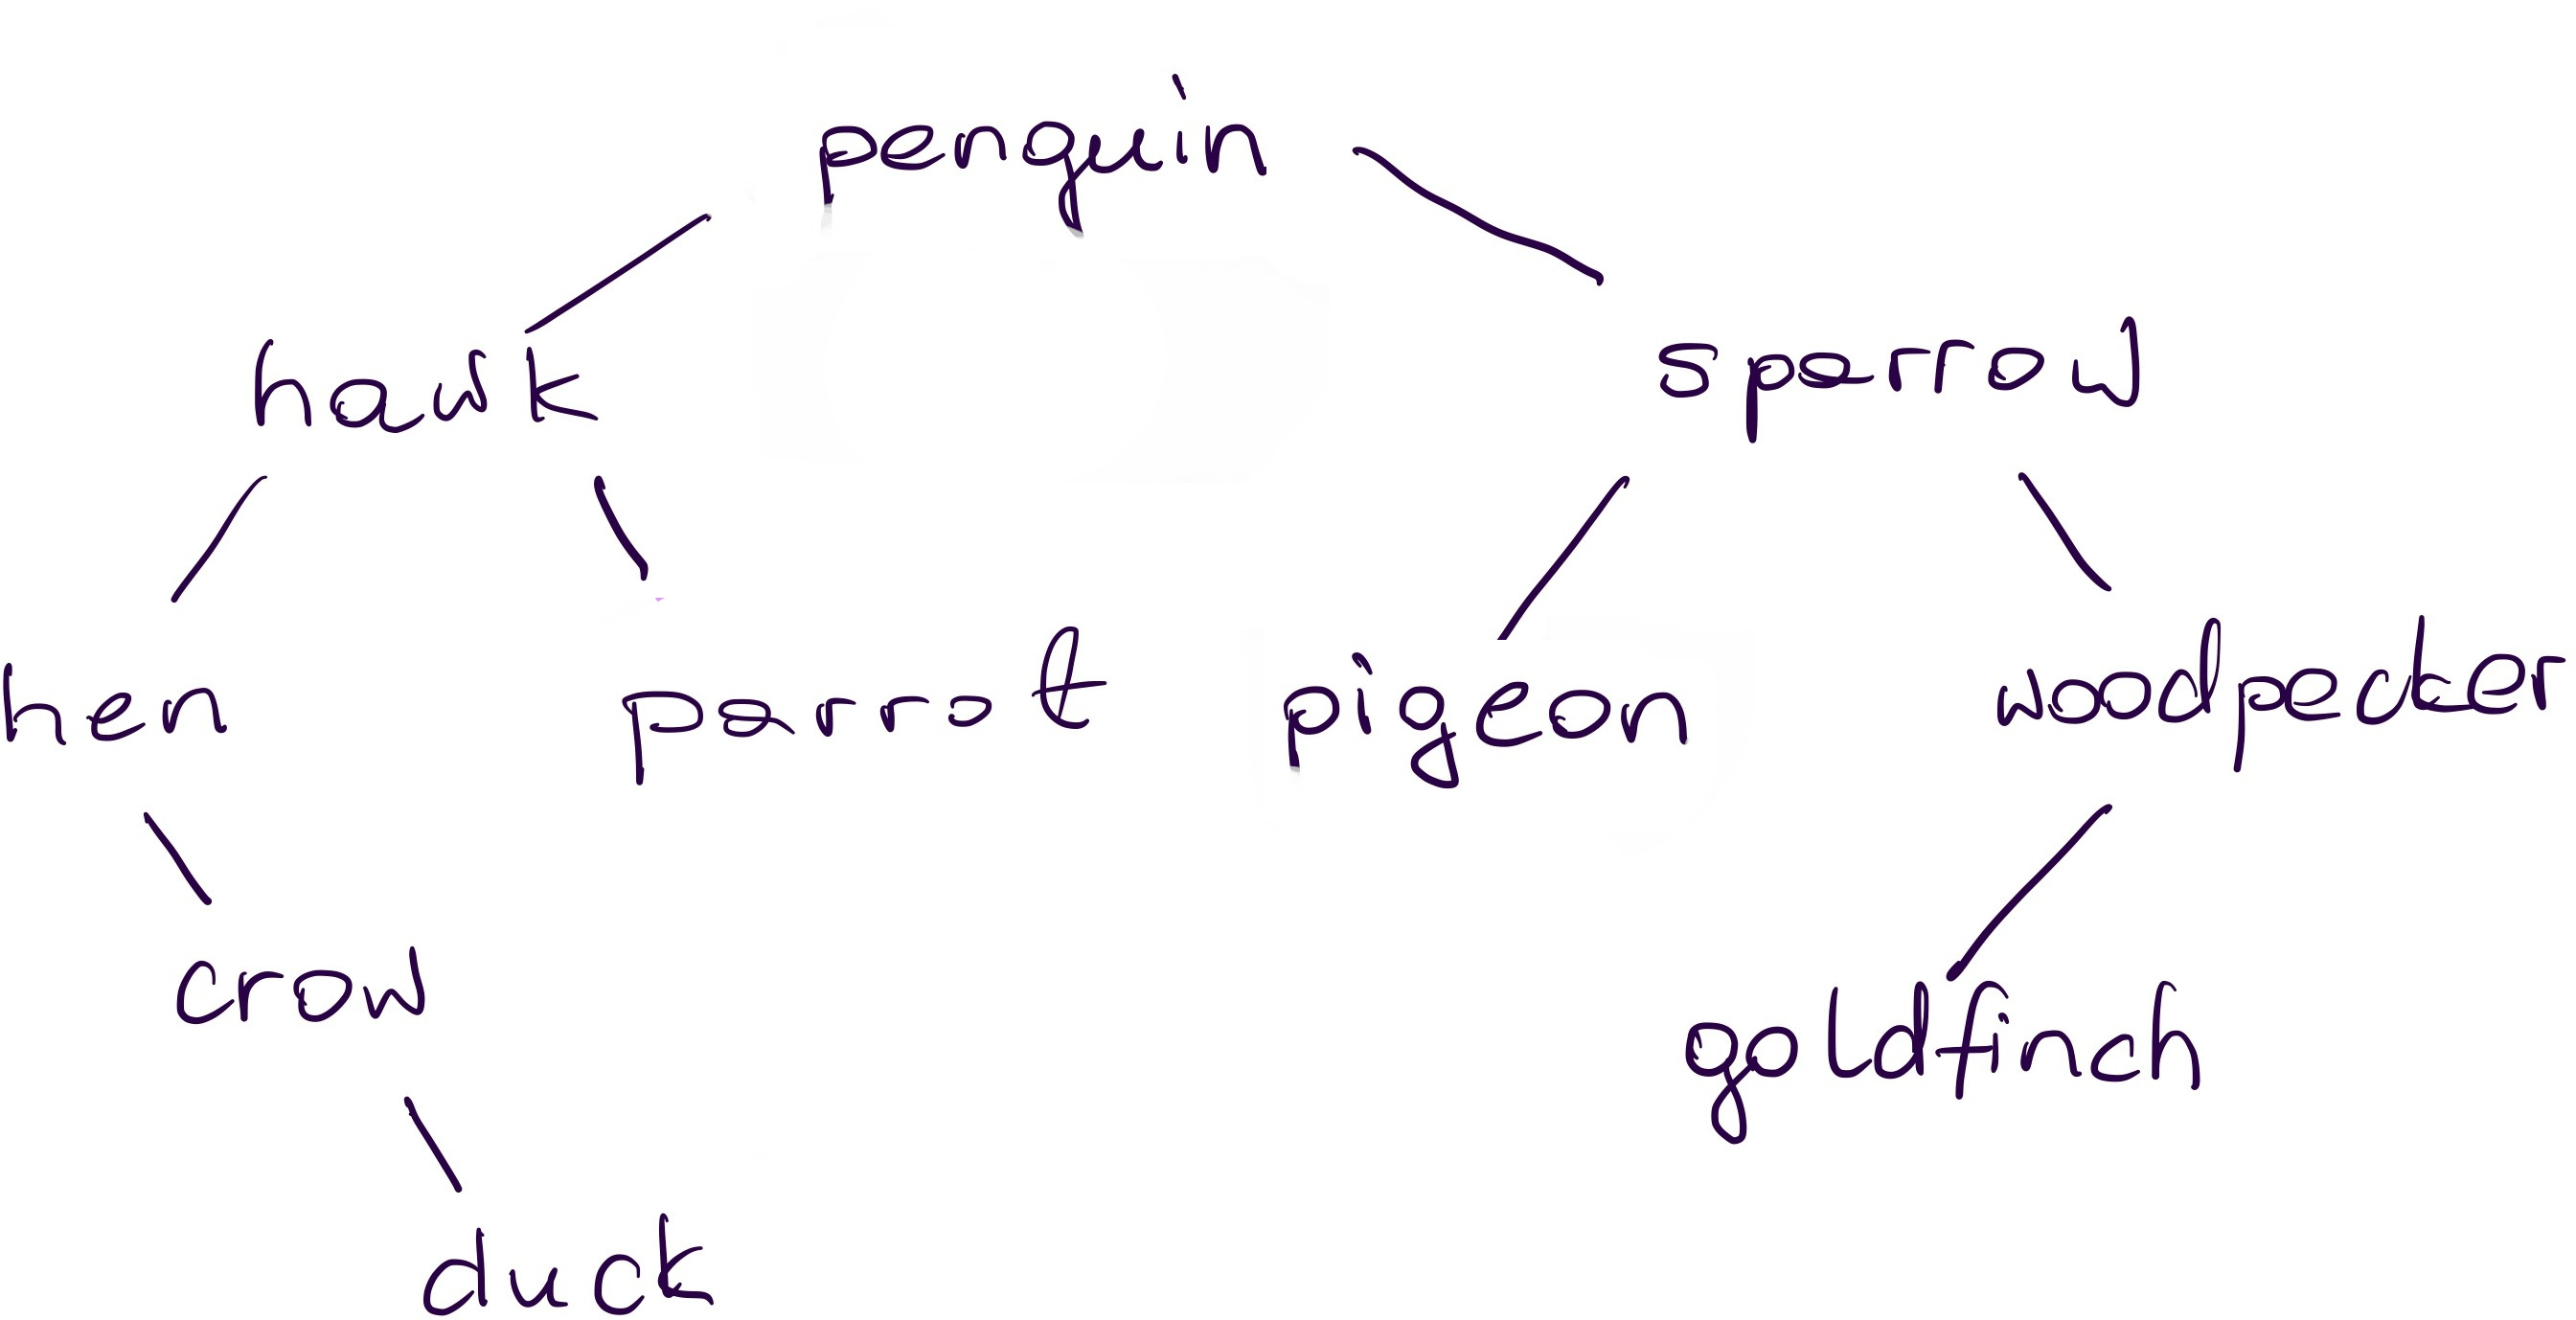 penguin
hawk sparrow
hen parrot pigeon woodpecker
crow goldfinch
duck